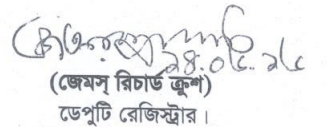 ২৪.০৫.২৫
(জেমস্ রিচার্ড ক্রুশ)
ডেপুটি রেজিস্ট্রার।